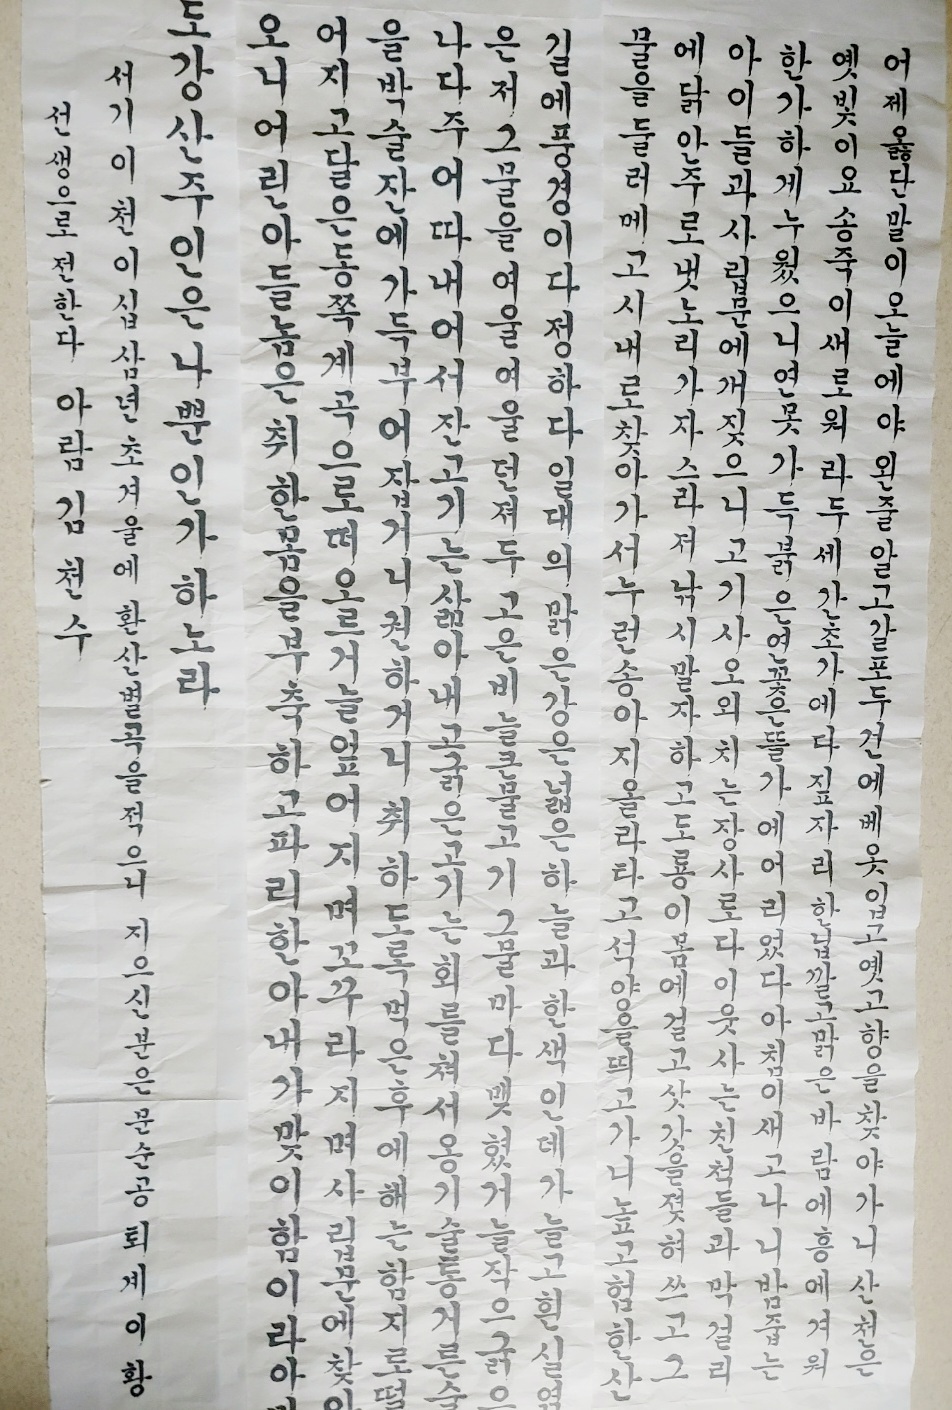 어제 옳단 말이 오늘에야 왼 줄 알고 갈포두건에 베옷 입고 옛 고향을 찾아가니 산천은
옛빛이요 송죽이 새로워라 두세 간 초가에 다 짚자리 한 닢 깔고 맑은 바람에 흥에 겨워
한가하게 누웠으니 연못 가득 붉은 연꽃은 뜰 가에 어리었다 아침이 새고 나니 밤 줍는
아이들과 사립문에 개 짖으니 고기 사오 외치는 장사로다 이웃 사는 친척들과 막걸리
에 닭 안주로 냇노리 가자스라 저 낚시 말자 하고 도롱이 몸에 걸고 삿갓을 젖혀 쓰고 그
물을 둘러메고 시내로 찾아가서 누런 송아지 올라타고 석양을 띄고 가니 높고 험한 산
길에 풍경이 다정하다 일대의 맑은 강은 넓은 하늘과 한색인데 가늘고 흰 실
은 저 그물을 여울여울 던져두고 은비늘 큰 물고기 그물마다 맺혔거늘 작으
나 다 주어 따내어서 잔고기는 삶아내고 굵은 고기는 회를 쳐서 옹기 술통 거른 술
을 박술잔에 가득 부어 잡거니 권하거니 취하도록 먹은 후에 해는 함지로
어지고 달은 동쪽 계곡으로 떠오르거늘 엎어지며 꼬꾸라지며 사립문에
오니 어린 아들놈은 취한 몸을 부축하고 파리한 아내가 맞이함이라 아
도 강산 주인은 나뿐인가 하노라
서기 이천이십삼년 초겨울에 환산별곡을 적으니 지으신 분은 문순공 퇴계 이황
선생으로 전한다 아람 김천수